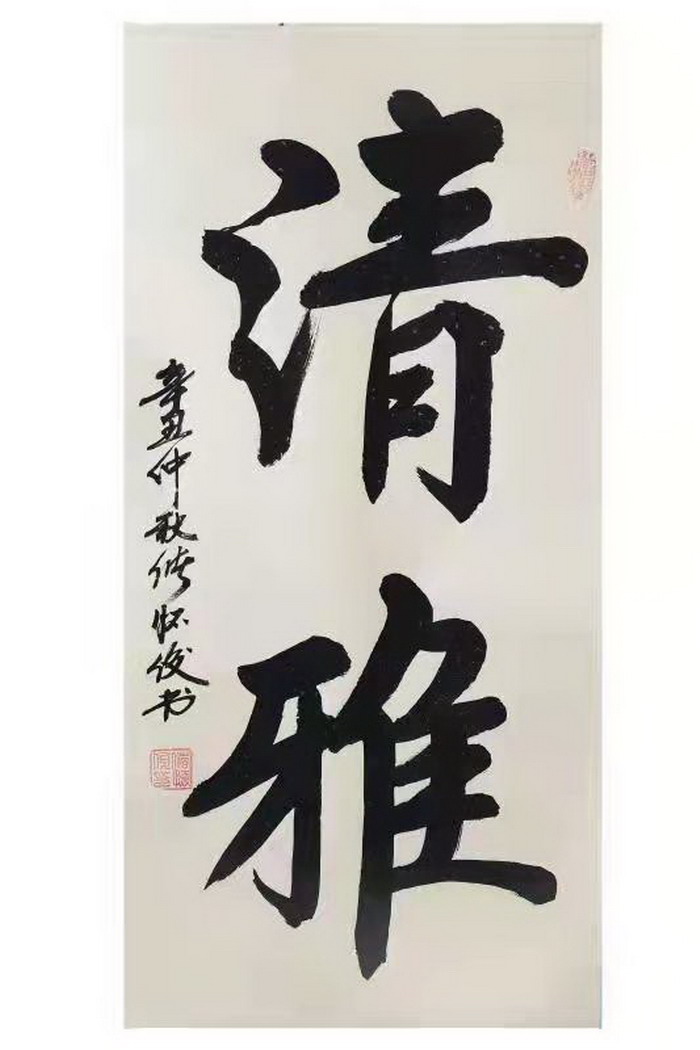 清雅
辛丑仲秋倪怀俊书